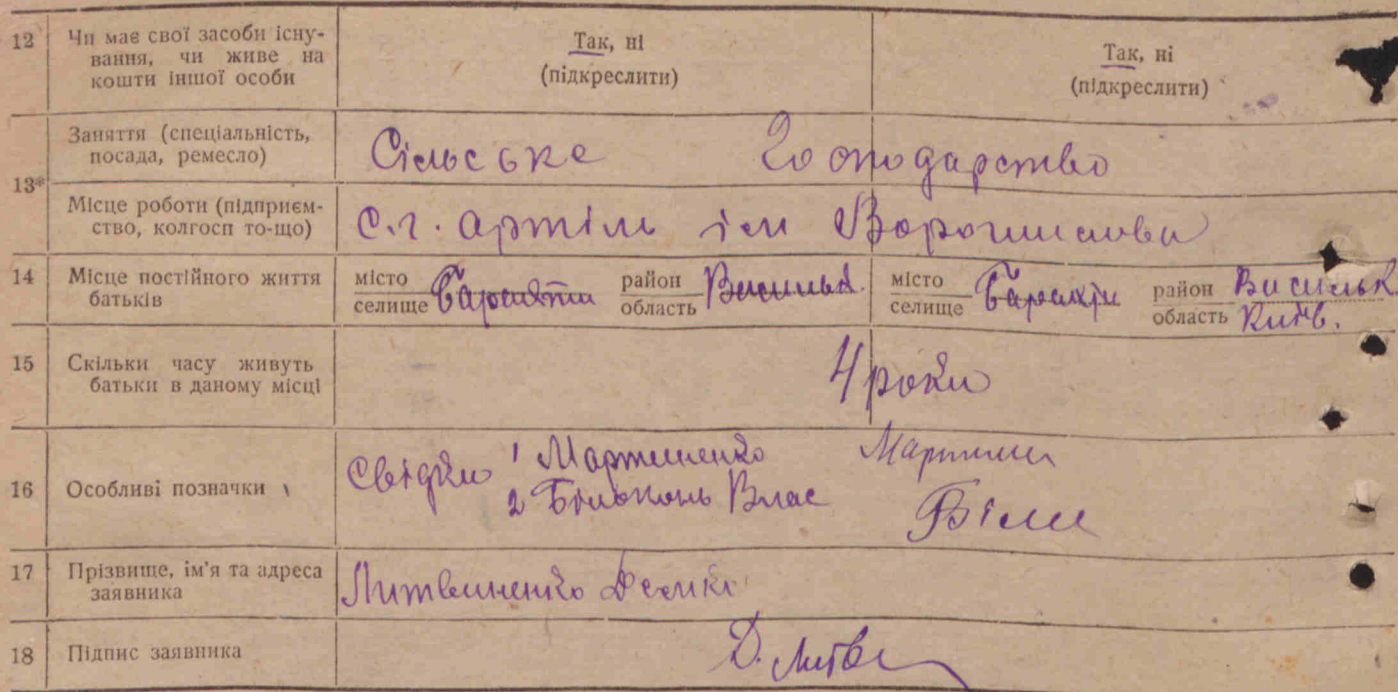 12 Чи має свої засоби існу-
вання, чи живе на
кошти іншої особи
Так, ні
(підкреслити)
Так, ні
(підкреслити)
13*
Заняття (спеціальність,
посада, ремесло)
Сільське господарство
Місце роботи (підприєм-
ство, колгосп то-що)
с.г. артіль ім Ворошилова
14 Місце постійного життя
батьків
місто
селище
район
область
Васильк.
місто
селище
район
область
Васильк
Київ.
15 Скільки часу живуть
батьки в даному місці
4 роки
16 Особливі позначки
Свідки 1 Мартиненко
2 Білоконь Влас
17 Прізвище, ім'я та адреса
заявника
Литвиненко
18 Підпис заявника
Д. Литв